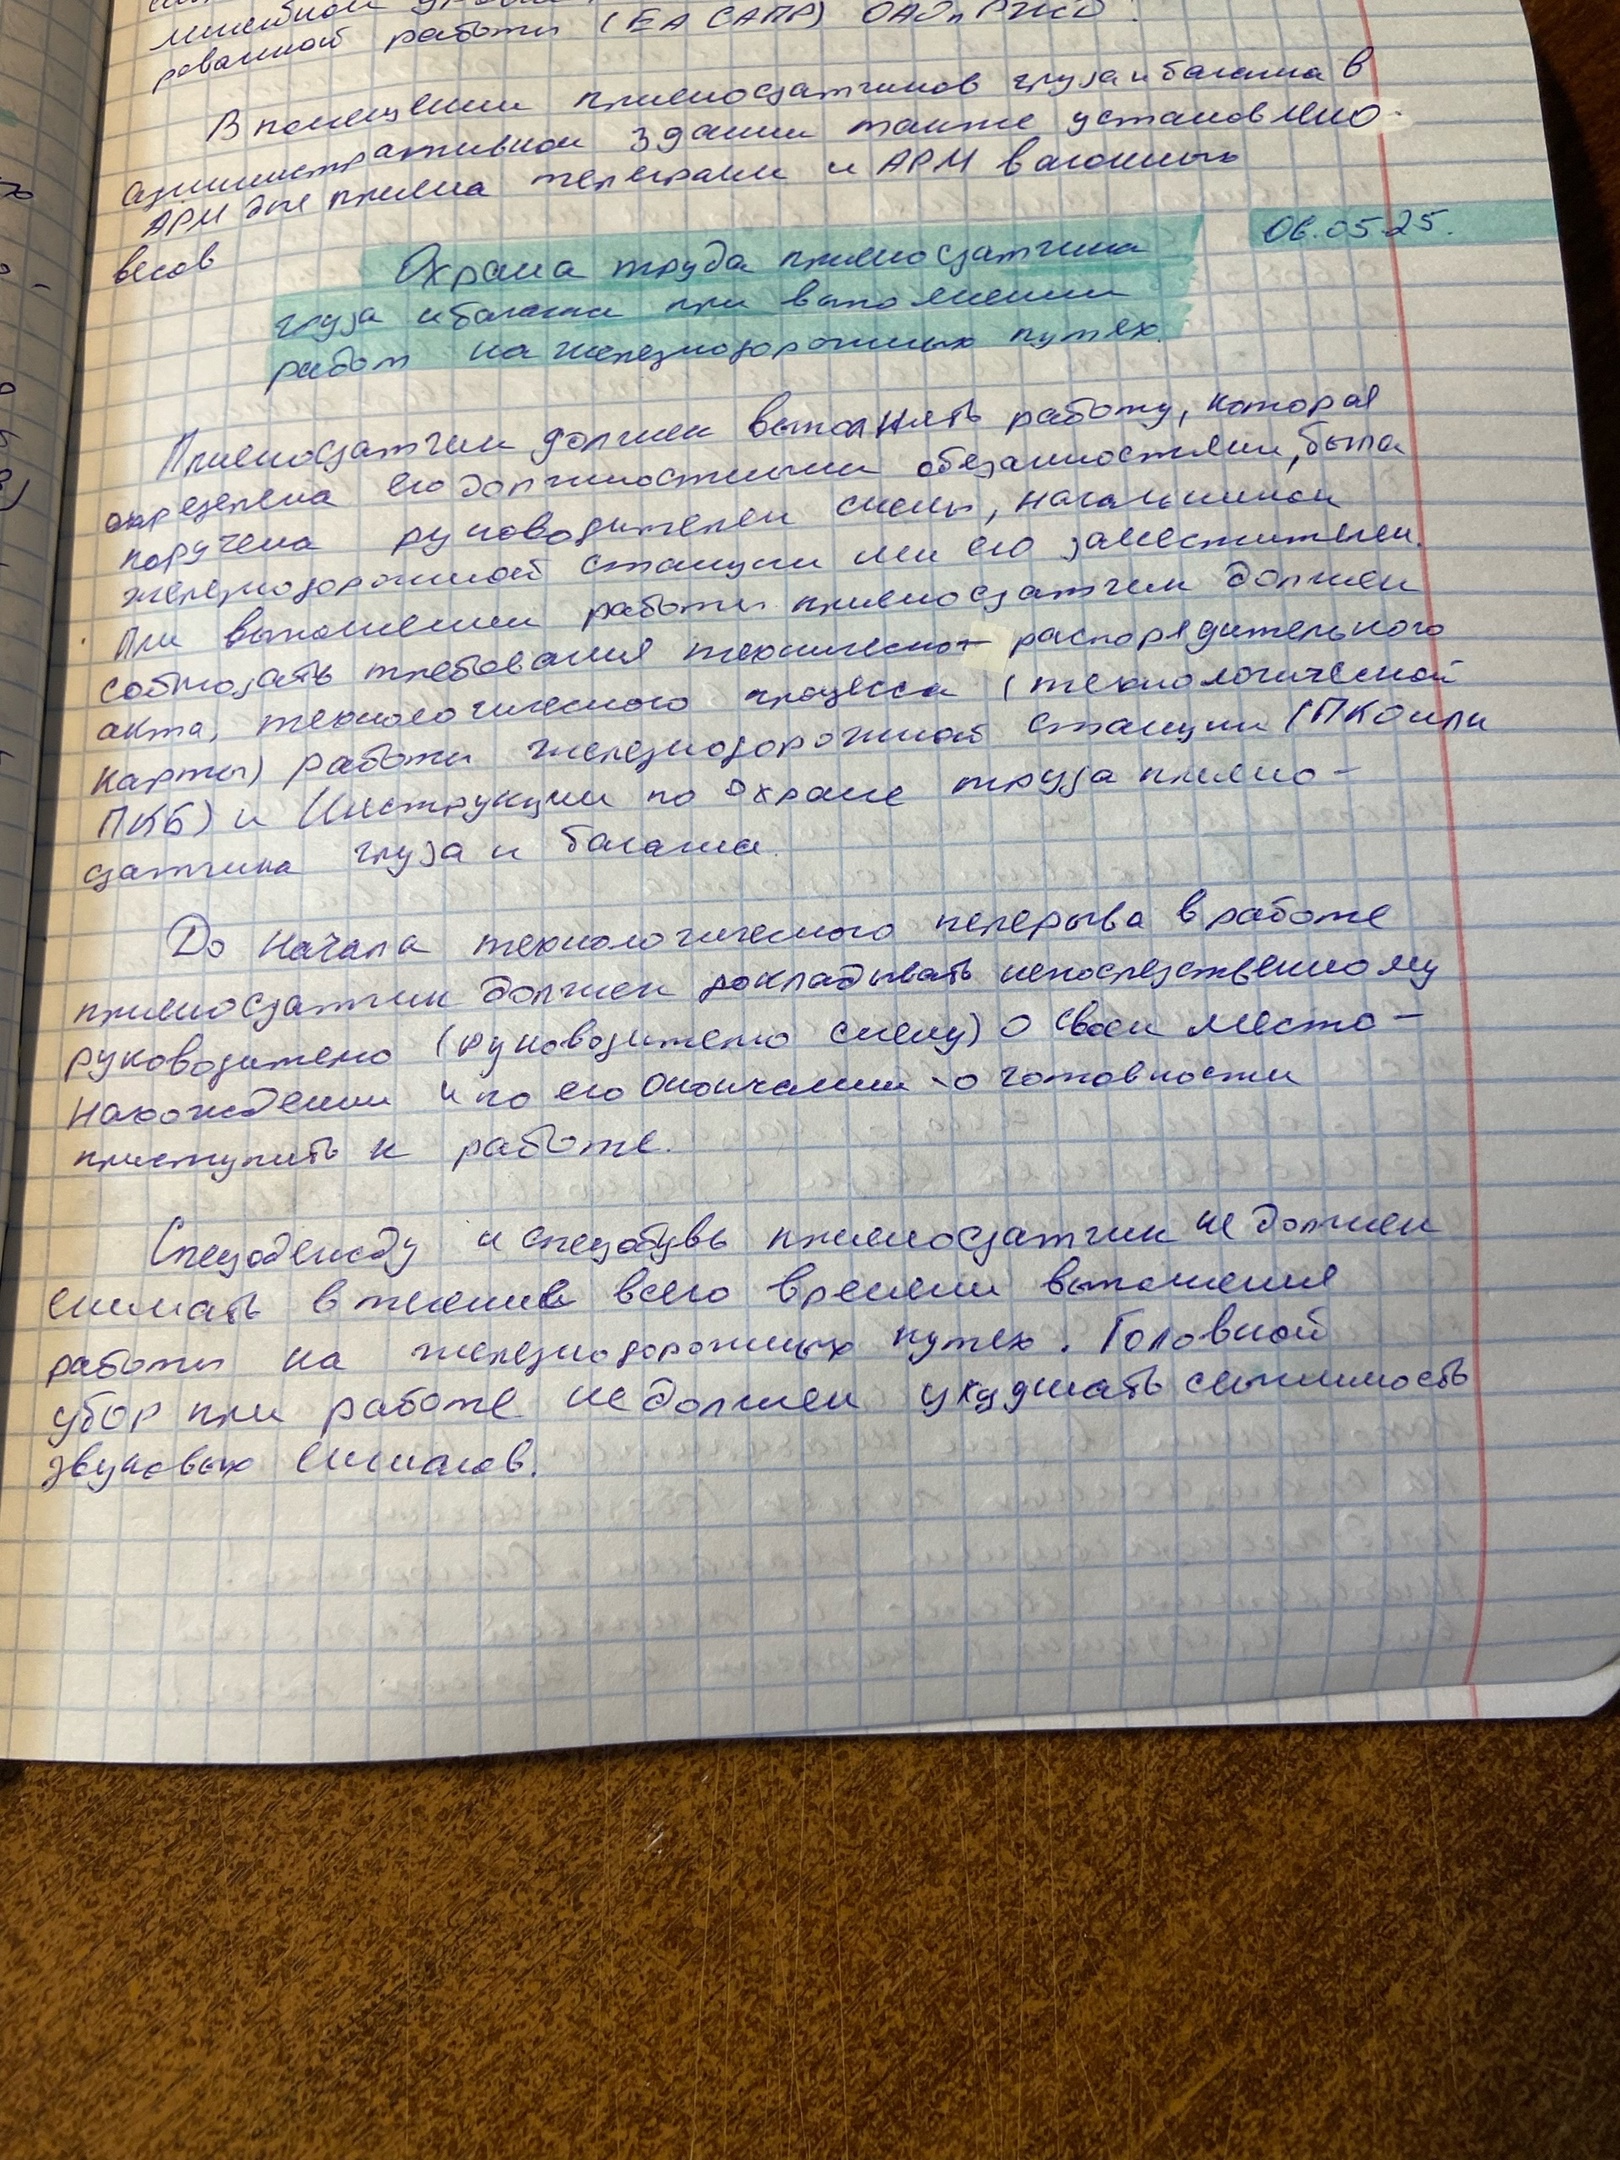 рованной работы (ЕА САПР) ОАО "РЖД".
В помещении приемосдатчиков груза и багажа в
административном здании также установлено
АРМ для приема телеграмм и АРМ вагонных
весов
06.05.25.
Охрана труда приемосдатчика
груза и багажа при выполнении
работ на железнодорожных путях.
Приемосдатчик должен выполнять работу, которая
определена его должностными обязанностями, была
поручена руководителем смены, начальником
железнодорожной станции или его заместителем.
При выполнении работы приемосдатчик должен
соблюдать требования техническо- распорядительного
акта, технологического процесса (технологической
карты) работы железнодорожной станции (ПКО или
ПКБ) и Инструкции по охране труда приемо-
сдатчика груза и багажа.
До начала технологического перерыва в работе
приемосдатчик должен докладывать непосредственному
руководителю (руководителю смену) о своем место-
нахождении и по его окончании - о готовности
приступить к работе.
Спецодежду и спецобувь приемосдатчик не должен
снимать в течение всего времени выполнения
работы на железнодорожных путях. Головной
убор при работе не должен ухудшать слышимость
звуковых сигналов.